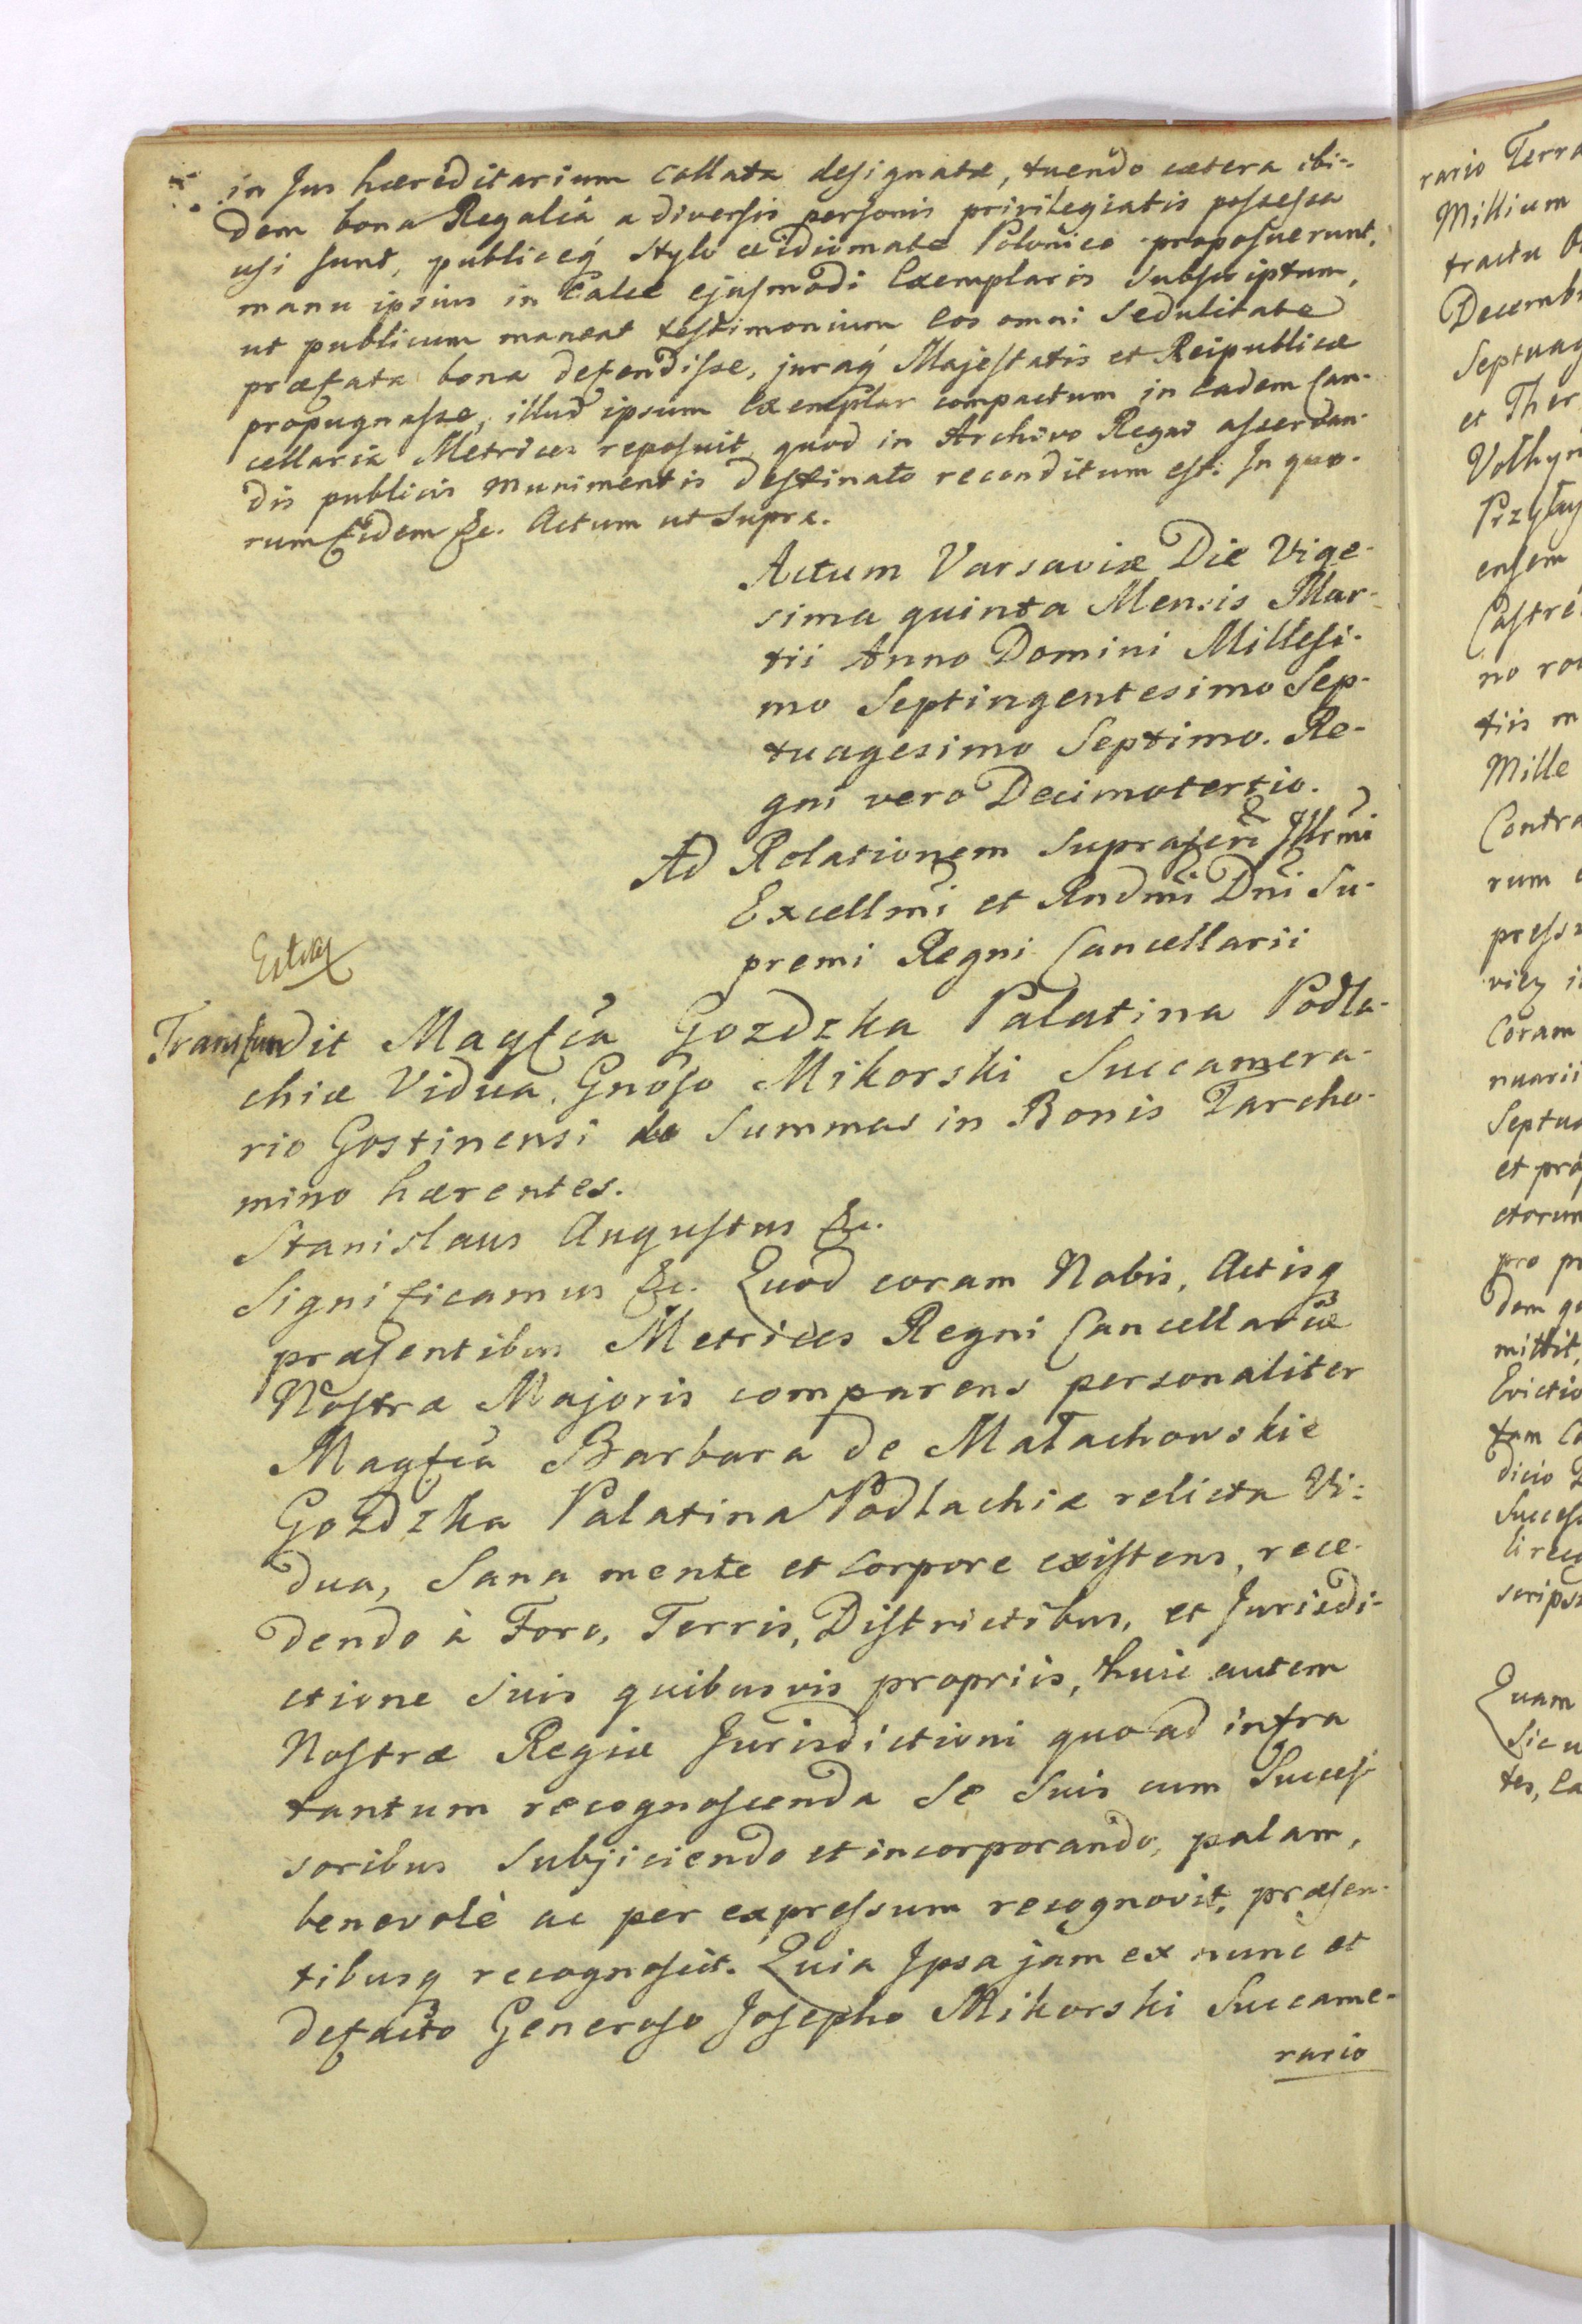 in Jus hæreditarium collata designatæ, tuendo cætera ibi-
dem bona Regalia a diversis personis privilegiatis possessa
usi sunt, publiceq́ stylo et idiomate Polonico proposuerunt,
manu ipsius in Calce ejusmodi Exemplaris subscriptum,
ut publicum maneat testimonium Eos omni sedulitate
præfata bona defendisse, juraq́ Majestatis et Reipublicæ
propugnasse, illud ipsum Exemplar compactum in eadem Can-
cellaria Metrices reposuit, quod in Archivo Regni asservan-
dis publicis munimentis destinato reconditum est. In quo-
rum fidem &c. Actum ut supra.
Actum Varsaviæ Die Vige-
sima quinta Mensis Mar-
tii Anno Domini Millesi-
mo Septingentesimo Sep-
tuagesimo Septimo. Re-
gni vero Decimotertio.
Ad Relationem supraferi Illrmi
Excellmi et Rndmi Dni Su-
premi Regni Cancellarii
Transfundit Magfca Gozdzka Palatina Podla-
chiæ Vidua, Gnoso Mikorski Succamera-
rio Gostinensi Summas in Bonis Tarcho-
mino hærentes.
Stanislaus Augustus &c.
Significamus &c. Quod coram Nobis, Actisq
præsentibus Metrices Regni Cancellariæ
Nostræ Majoris comparens personaliter
Magfca Barbara de Małachowskie
Gozdzka Palatina Podlachiæ relicta Vi:
dua, Sana mente et Corpore existens, rece-
dendo à Foro, Terris, Districtibus, et Jurisdi-
ctione suis quibusvis propriis, huic autem
Nostræ Regiæ Jurisdictioni quo ad infra
tantum recognoscenda se suis cum Succes-
soribus subjiciendo et incorporando, palam,
benevolè ac per expressum recognovit, præsen-
tibusq recognoscit. Quia Ipsa jam ex nunc et
defacto Generoso Josepho Mikorski Succame-
rario
rario Terra
Millium
tractu
Decemb
Septuag
et Ther
Volhyn
Przyłu
ensem
Castre
no
tiis m
Mille
Contra
rum
press
vicz
Coram
nuarii
Septua
et
ctorum
pro
dem
mittit,
Evictio
tam
dicio
Success
li
scrips
Quam
Sic
tes,